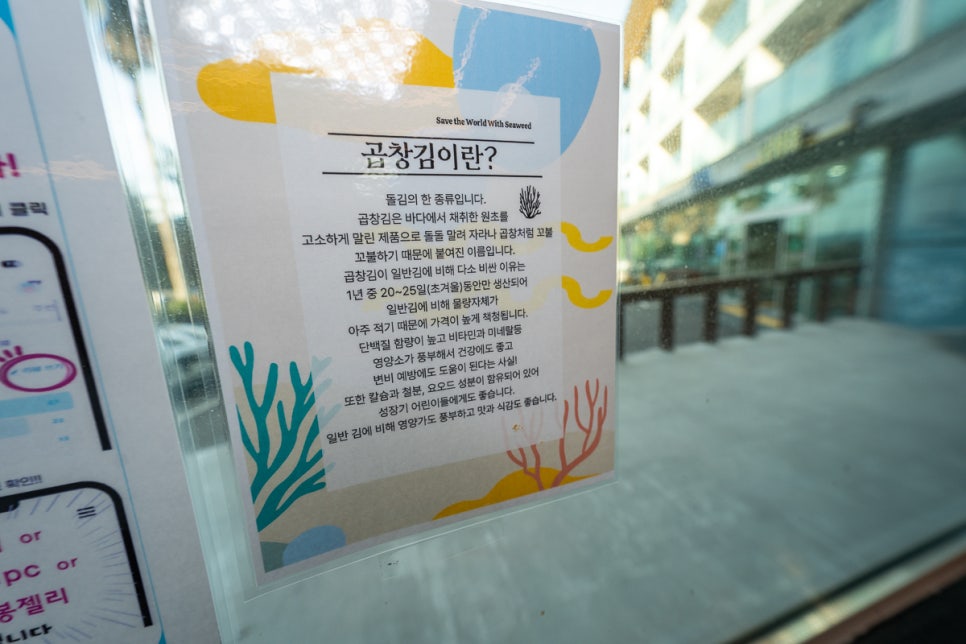 Save the World With Seaweed
곱창김이란?
돌김의 한 종류입니다.
곱창김은 바다에서 채취한 원초를
고소하게 말린 제품으로 돌돌 말려 자라나 곱창처럼 꼬불
꼬불하기 때문에 붙여진 이름입니다.
곱창김이 일반김에 비해 다소 비싼 이유는
1년 중 20~25일(초겨울)동안만 생산되어
일반김에 비해 물량자체가
아주 적기 때문에 가격이 높게 책정됩니다.
단백질 함량이 높고 비타민과 미네랄등
영양소가 풍부해서 건강에도 좋고
변비 예방에도 도움이 된다는 사실!
또한 칼슘과 철분, 요오드 성분이 함유되어 있어
성장기 어린이들에게도 좋습니다.
일반 김에 비해 영양가도 풍부하고 맛과 식감도 좋습니다.
클릭
확인!!
or
pc or
봉젤리